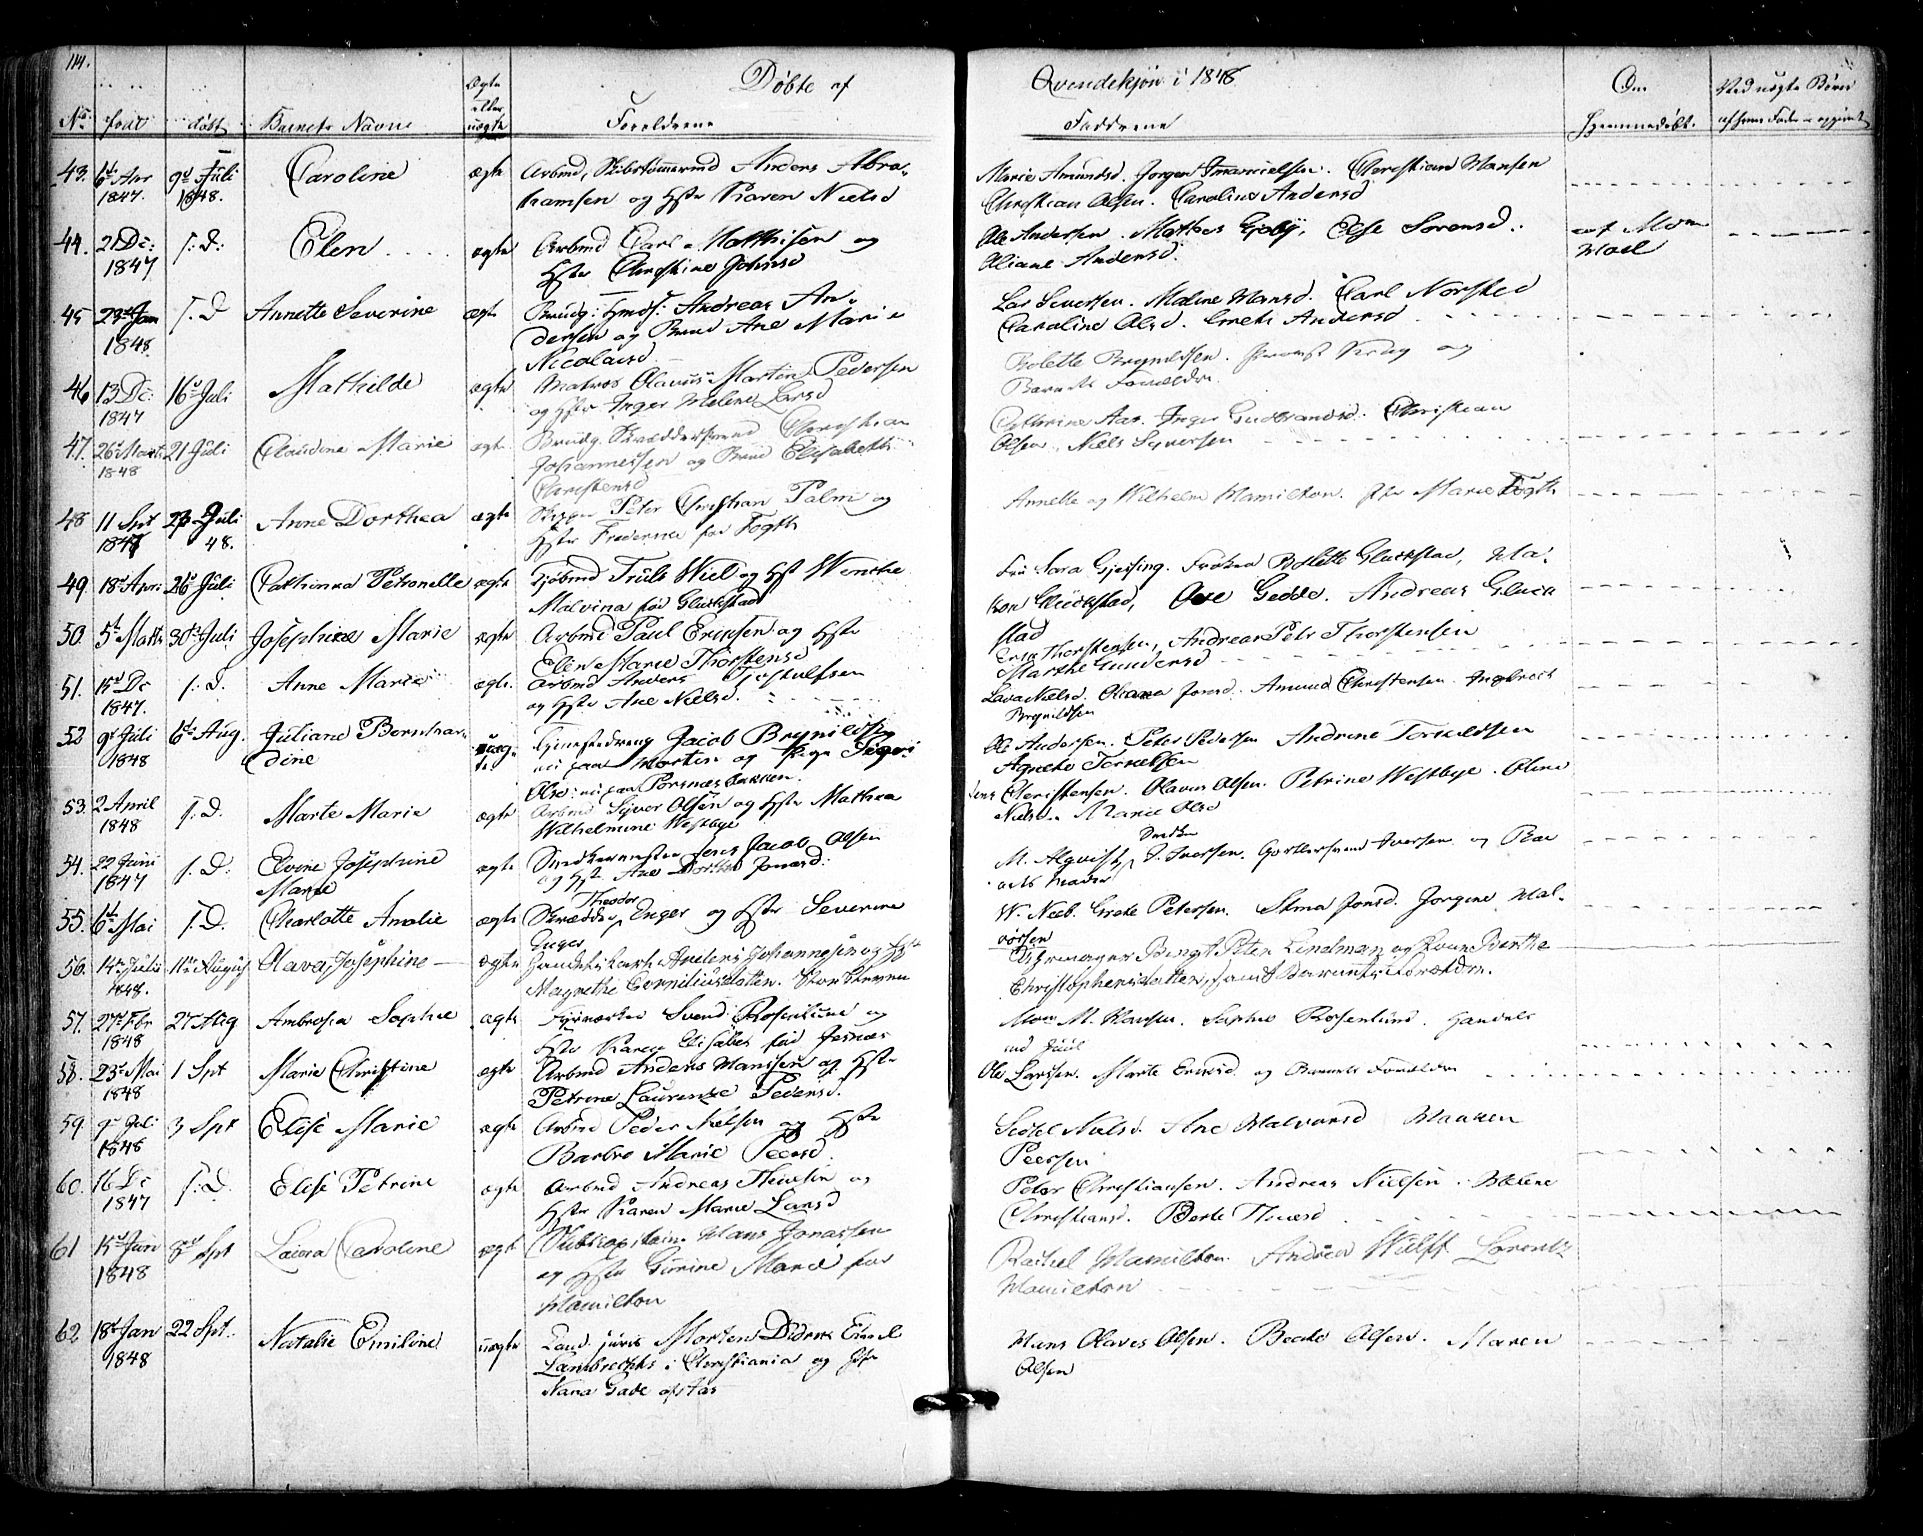 114.
Døbte af
Qvindekjøn i 1848
No født døbt Barnets Navn Ægte eller uægte Forældrene
Fadderne Om Hjemmedøbt. Ved uægte Børn
43. 6te Apr 1847. 9d Juli 1848. Caroline ægte Arbmd, Skibstømmermd Anders Abra-
hamsen og Hstr Karen Nielsd
Marie Amundsd. Jorgen Imanuelsen. Christian Hansen
Christian Olsen. Caroline Andersd
44. 21 Dc: 1847 s: D: Elen ægte Arbmd Carl Matthisen og
Hstr Christine Johnsd
Ole Andersen. Mathea Gjeby, Else Sorensd.
Oliane Andersd. af Mom
Moel
45 29de Jan 1848. s. D Annette Severine ægte Brudg: Hmds: Andreas An-
dersen og Brud Ane Marie
Nicolaisd
Lars Seversen. Maline Hansd. Carl Norsted
Caroline Olsd. Grethe Andersd
46 13 Dc: 1847 16d Juli Mathilde ægte Matros Olavus Martin Pedersen
og Hstr Inger Melene Larsd
Bolette Brynildsen. og
Barnets Forældre.
47. 26d Marts 1848 21 Juli Claudine Marie ægte Brudg. Skræddersvend Christian
Johannessen og Brud Elisabeth
Christensd
Cathrine Aas. Inger Gudbrandsd. Christian
Olsen. Niels Syversen
48 11 Spt 1847 23 Juli 48. Anne Dorthea ægte Skipper Peter Christian Palm og
Hstr Frederikke fød Fogth
Annette og Wilhelm Hamilton. Marie Fogth
49. 18d Apri 26d Juli Cathinka Petronelle ægte Kjøbmd Truls Wiel og Hst Wenche
Malvina fød Gluckstad
Fru Sara Gjersing. Frøken Bolette Gluckstad, Ha-
kon Glückstad, Ove Gedde. Andreas Gluck
stad
50. 5te Marts 30d Juli Josephine Marie ægte Arbmd Paul Ericksen og Hstr
Elin Marie Thorstensd
Eric Thorstensen, Andreas Petr Thorstensen
Marthe Gundersd
51. 15d Dc 1847. s: D. Anne Marie ægte. Arbmd Anders Tjostulfsen
og Hstr Ane Nielsd.
Lava Nielsd. Oleana Jonsd. Amund Christensen. Ingebreth
Brynildsen
52 9d Juli 1848 6te Aug. Juliane Bernhar-
dine uæg-
te Jacob Brynildsen
og Pige Inger
Olsd:
Ole Andersen. Peter Pedersen Andrine Torkildsen
Agnethe Torkelsen
53. 2 April 1848 s. D. Marte Marie ægte Arbmd Syver Olsen og Hstr Mathea
Wilhelmine Westbye
Jens Christensen. Olavus Olsen. Petrine Westbye. Oline
Nielsd. Marie Olsd
54. 22 Juni 1847 s. D. Elvine Josephine
Marie ægte Snedkermester Jens Jacob Olsen
og Hst. Ane Dorthea Jonasd:
M. Alqvist Snedker J. Iversen. Gørtlersvend Iversen og Bar
nets Moder
55. 6te Mai s. D. Charlotte Amalie ægte Skrædder Theodor Enger og Hstr Severine
Enger
W. Neeb. Grete Petersen. Stina Jonsd. Jorgine Hal-
vorsen
56. 14de Julii 1848. 11te August Olava Josephine ægte Handelskarl Anders Johannesen og Hst
Magrethe Corneliusdatter.
Uhrmager Bengt Peter Lindman og Kone Berthe
Christophersdatter, samt Barnets Forældre.
57. 27de Fbr 1848 27 Aug Ambrosia Sophie ægte Fyrverker Svend Rosenlund og
Hstr Karen Elisabet fød Jesnæs
Mom M. Hansen. Sophie Rosenlund. Handels
md Juul
58. 23de Mai 1848 1 Spt Marie Christine ægte Arbmd Anders Hansen og Hstr
Petrine Laurentze Pedersd.
Ole Larssen. Marte Ericsd. og Barnets Forældre
59. 9de Juli 1848 3 Spt Elise Marie ægte Arbmd Peder Nielsen og Hstr
Barbro Marie Peersd.
Nielsd. Ane Halvorsd Haaken
Peersen
60. 16 Dc 1847 s: D. Elise Petrine ægte Arbmd Andreas Thuesen og
Hstr Karen Marie Larsd
Peter Christiansen. Andreas Nielsen. Helene
Christiansd. Berte Thuesd
61 15d Juni 1848 8d Spt Laura Caroline ægte Skibscapitain Hans Jonassen
og Hstr Gurine Marie fød
Hamilton
Rachel Hamilton. Andrea Wulff Lorentz
Hamilton
62 18d Jan 1848 22 Spt. Natalie Emiline uægte Cand. juris Morten Didrik Emil
Lambrechts i Christiania og Pge
Nana Gade af Aas
Hans Olaves Olsen. Beate Olsen. Maren
Olsen